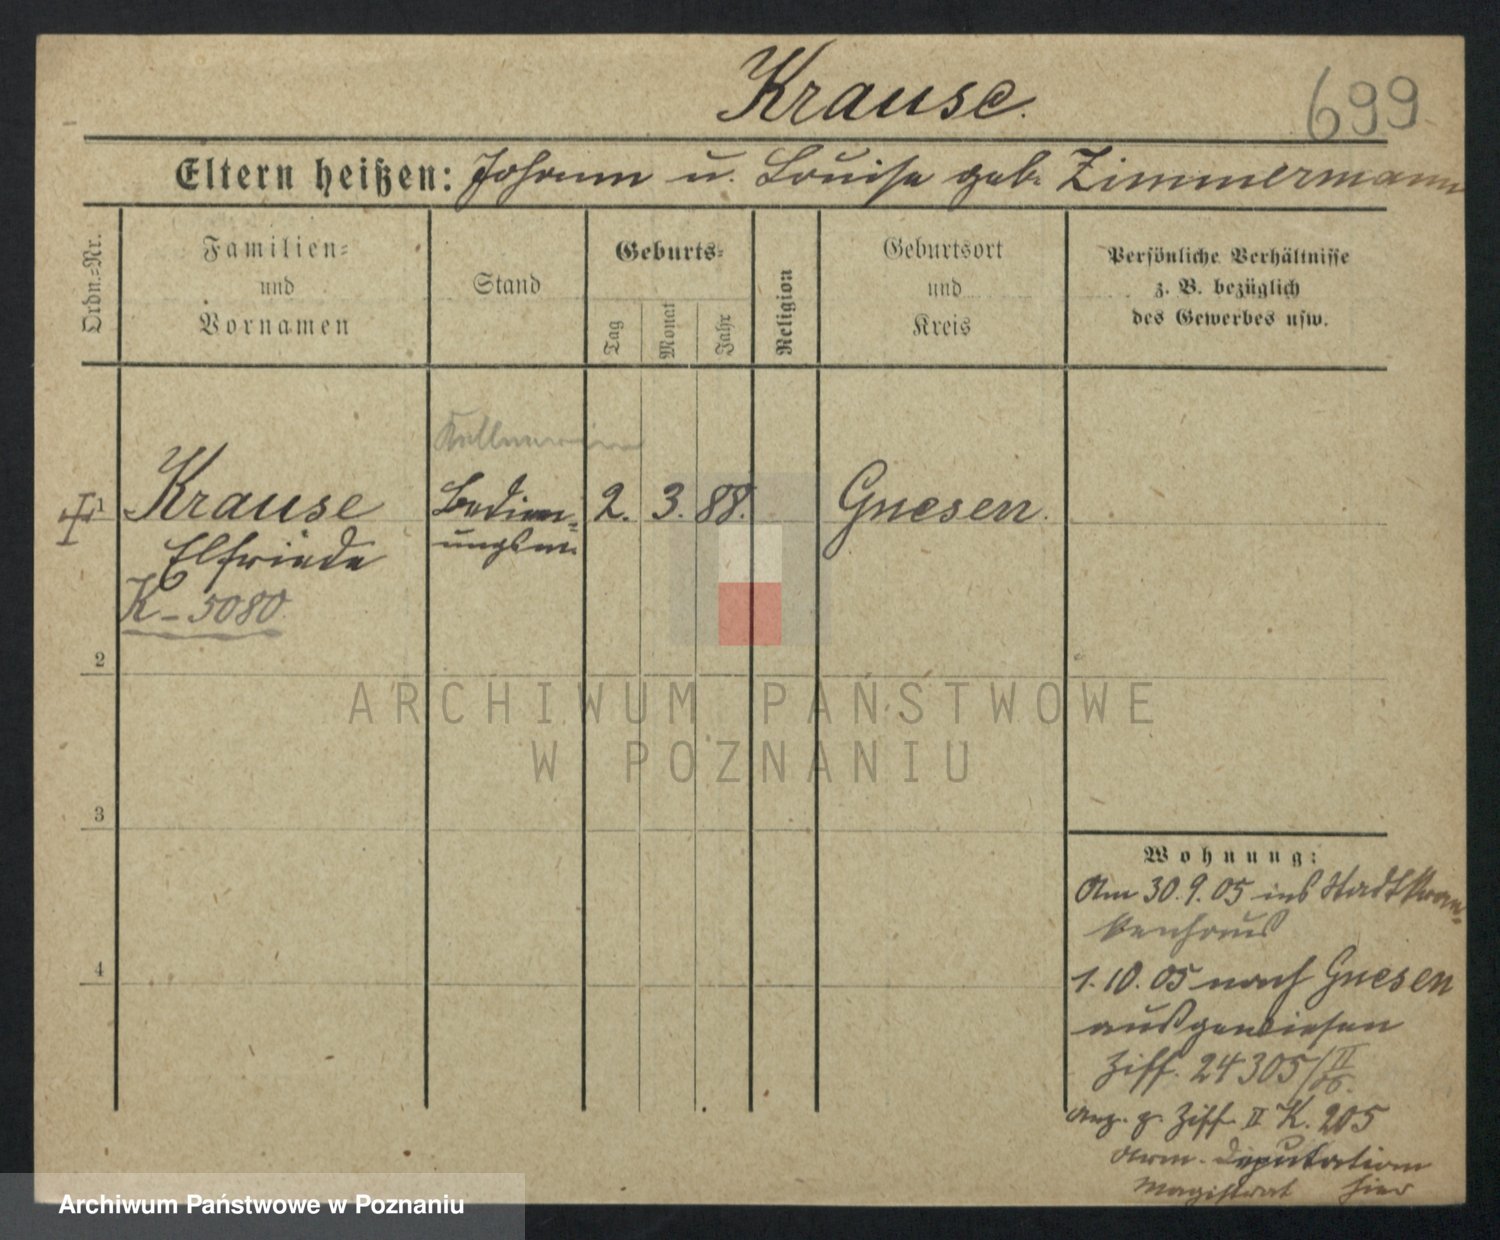 Krause.
699
Eltern heißen: Johann u. Louise geb. Zimmermann
Ordn.=Nr.
Familien=
und
Vornamen
Stand
Geburts=
Tag
Monat
Jahr
Religion
Geburtsort
und
Kreis
Persönliche Verhältnisse
z. B. bezüglich
des Gewerbes usw.
Kellnerin
1
Krause
Elfriede
K – 5080
Bedien=
ungsm.
2. 3. 88.
Gnesen.
2
3
4
Wohnung:
Am 30.9.05 ins Stadtkran=
kenhaus
1.10.05 nach Gnesen
ausgewiesen
Ziff. 24305/II
05.
Anz. z. Ziff. II K. 205
Arm. Deputation
Magistrat hier
ARCHIWUM PAŃSTWOWE
W POZNANIU
Archiwum Państwowe w Poznaniu